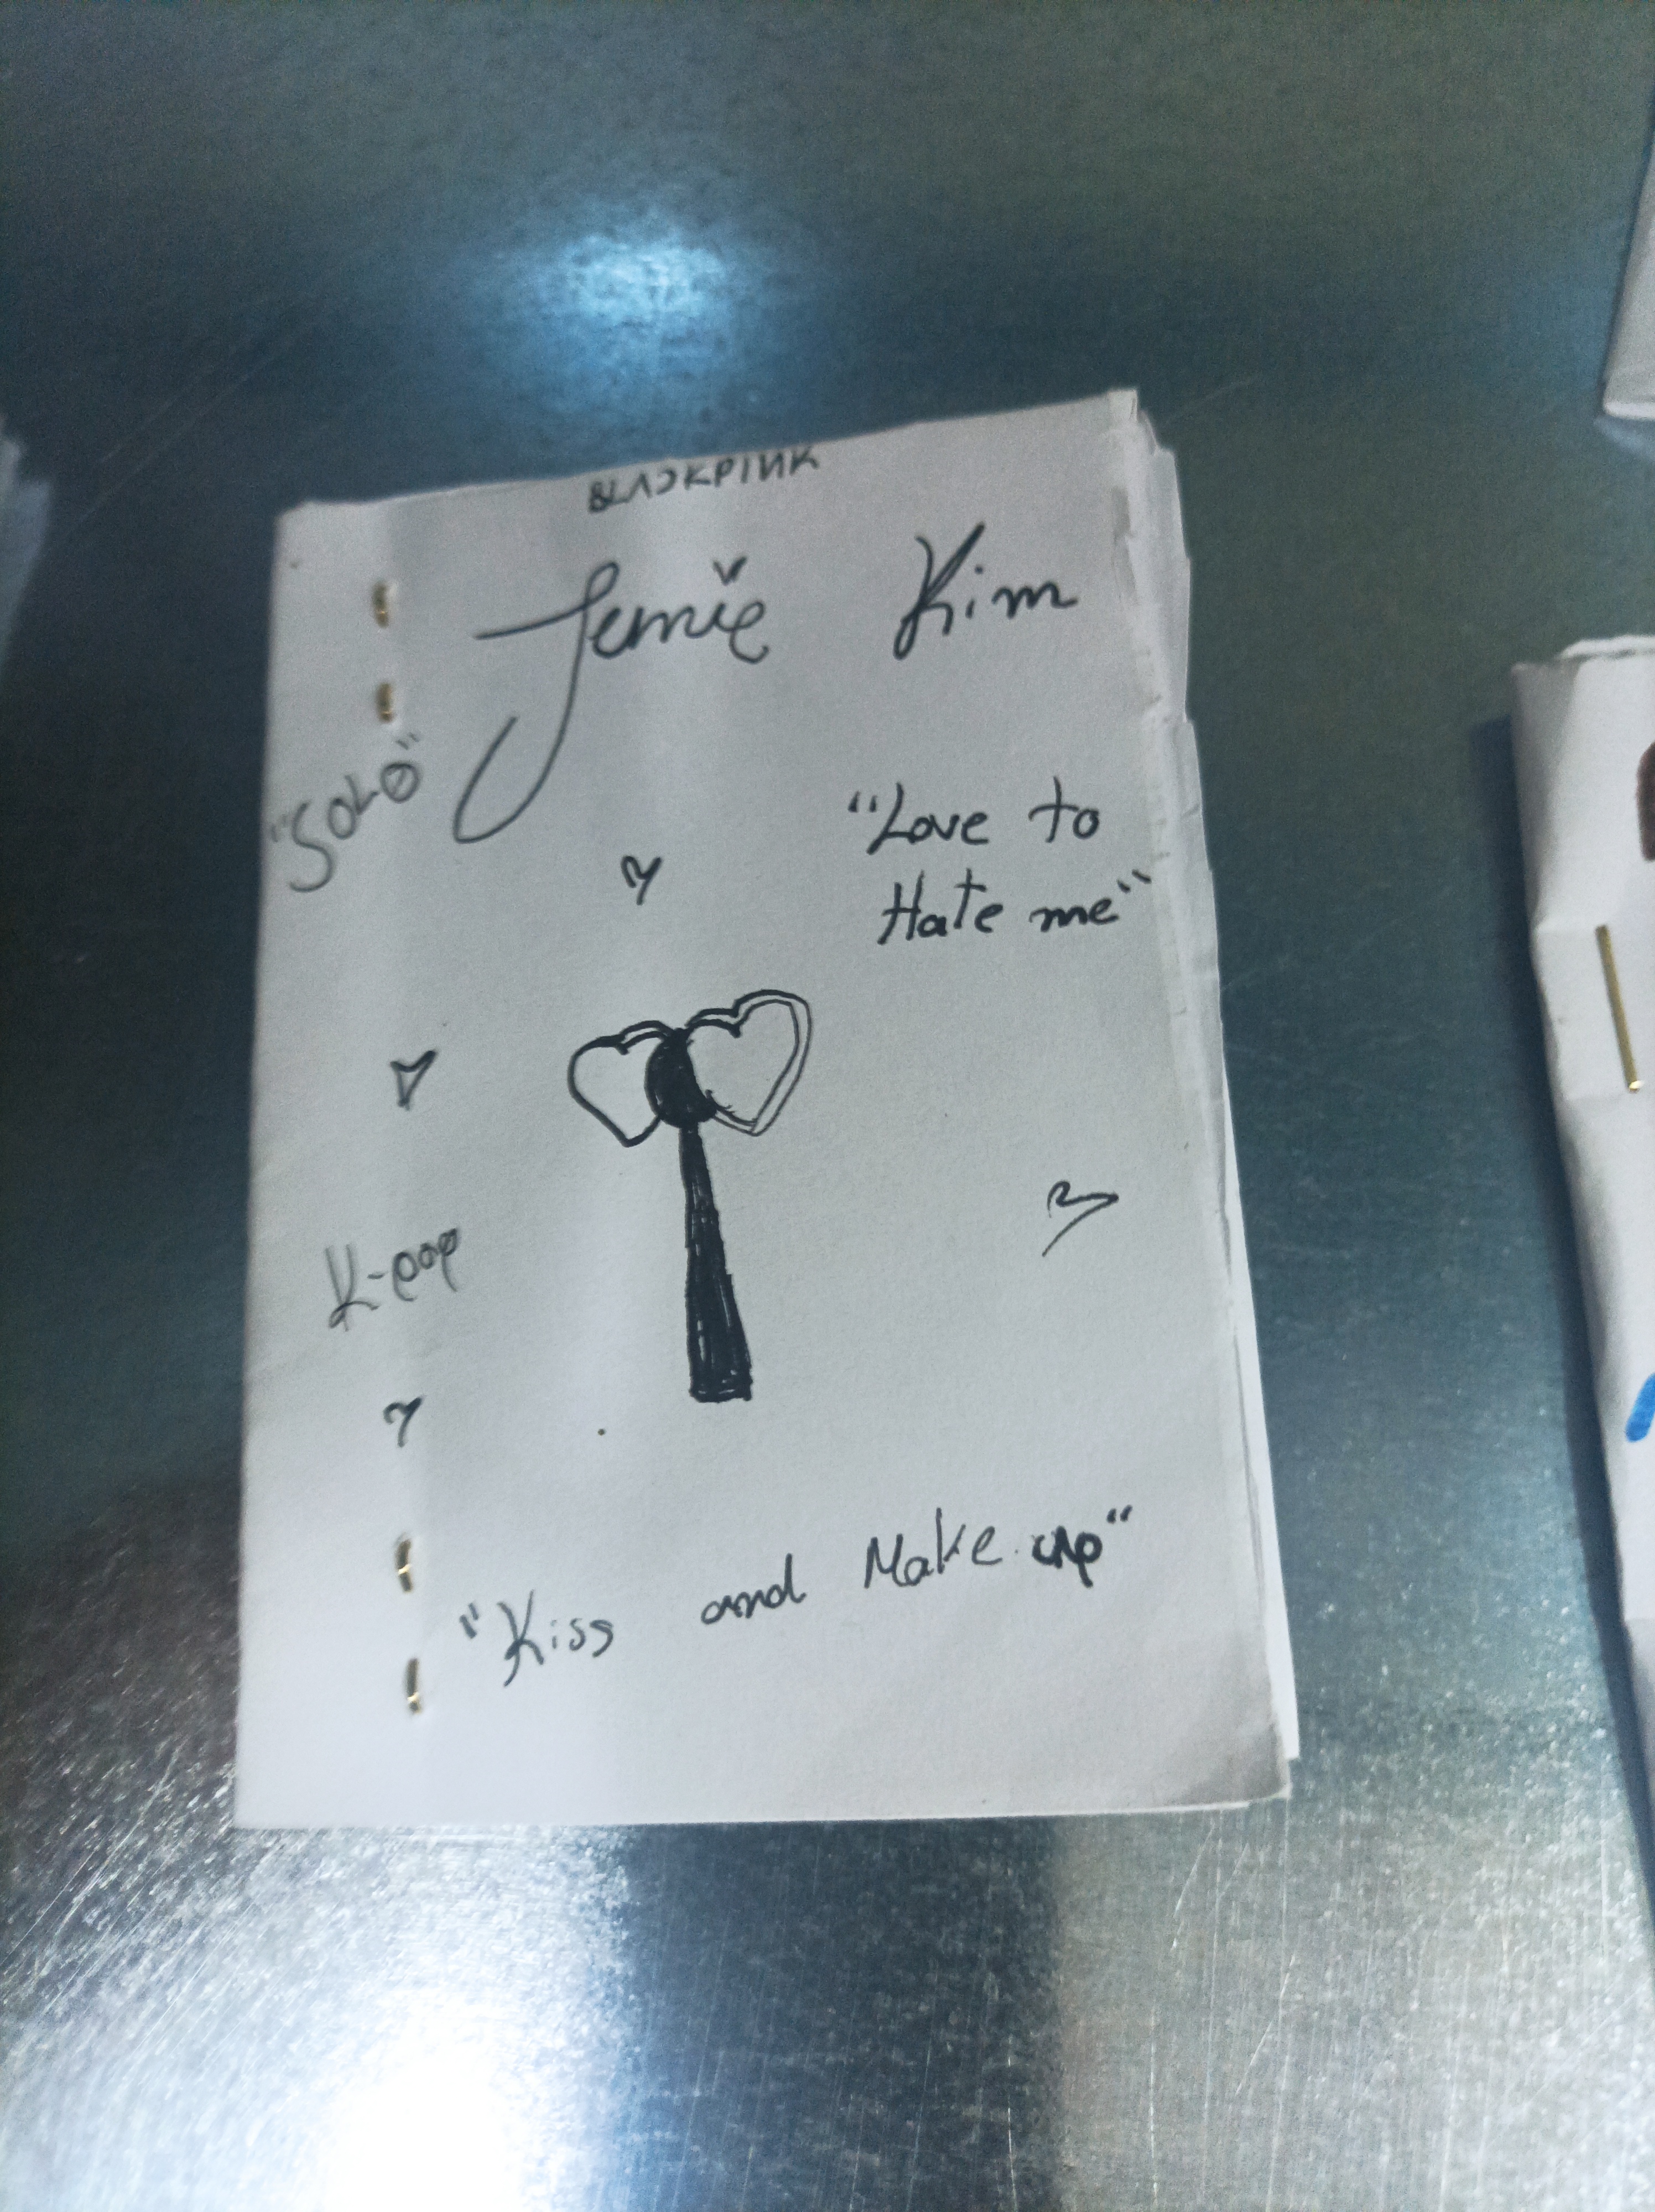 BLACKPINK
Jennie Kim
"SOLO"
"Love to
Hate me"
K-pop
"Kiss and Make up"